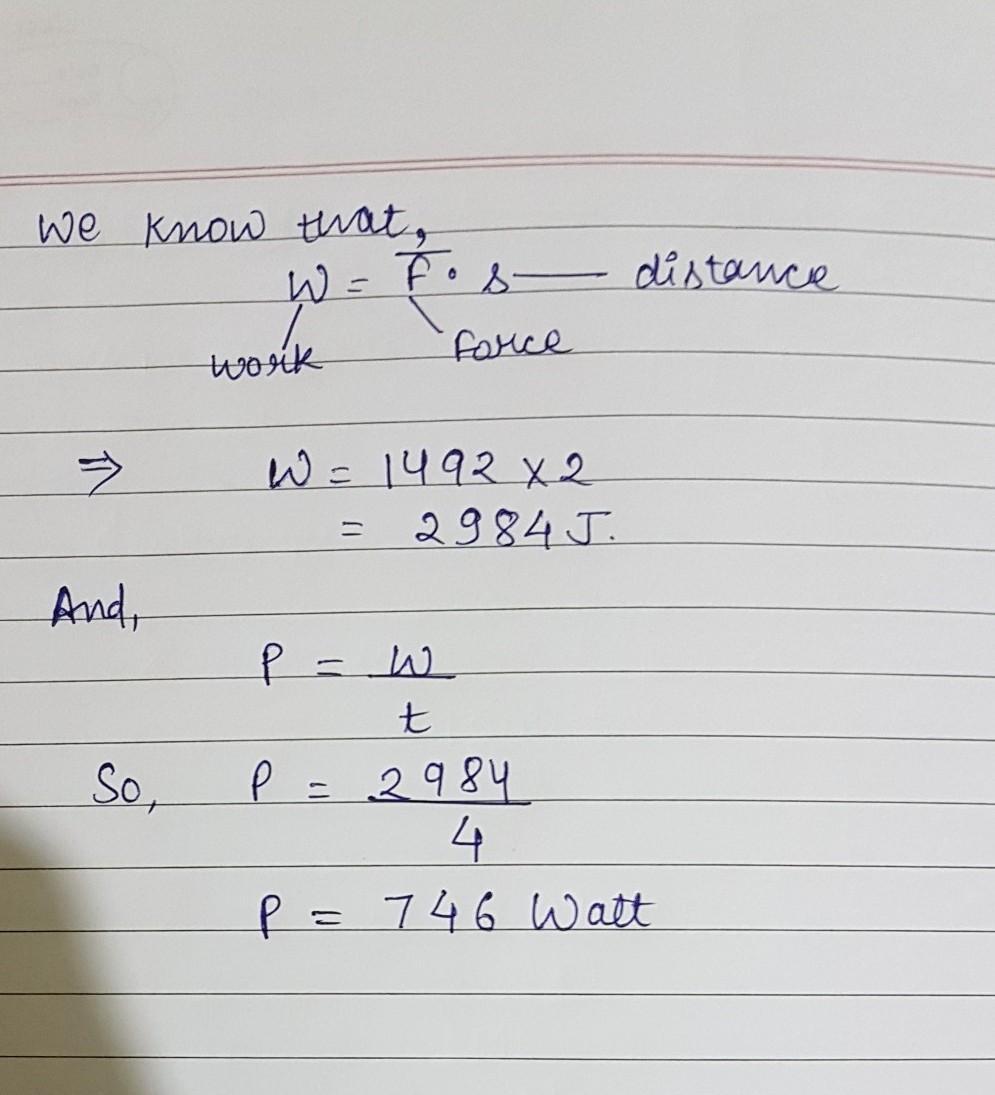 We know that,
W = F · s — distance
work force
⇒ W = 1492 × 2
= 2984 J.
And,
P = W
t
So, P = 2984
4
P = 746 Watt